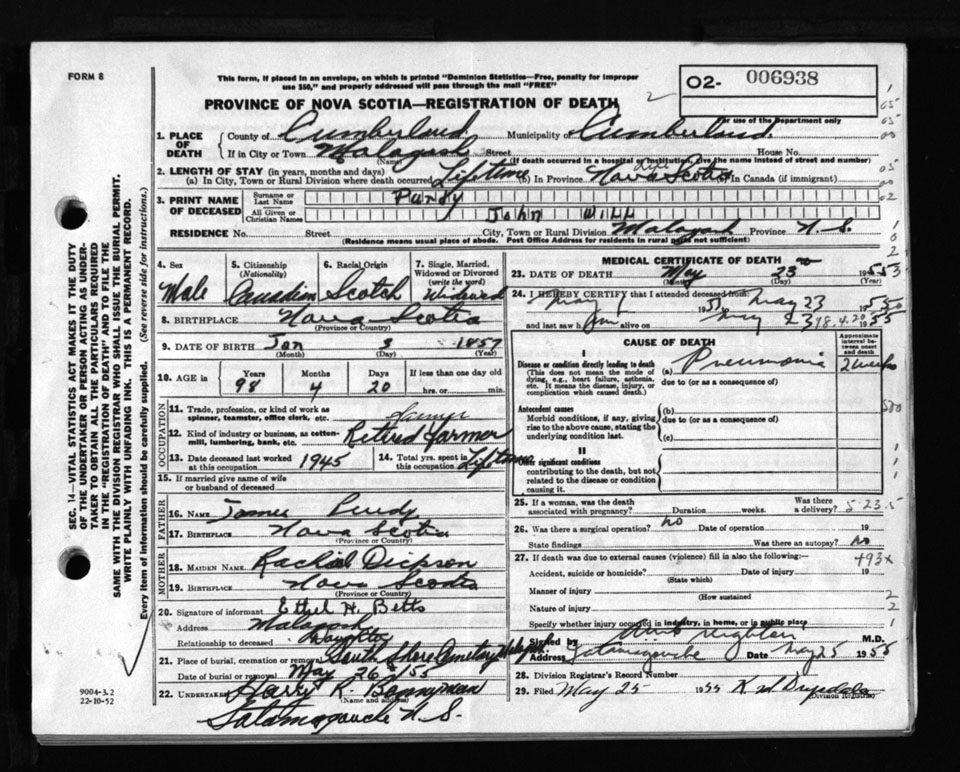 FORM 8
This form, if placed in an envelope, on which is printed "Dominion Statistics—Free, penalty for improper
use $50," and properly addressed will pass through the mail "FREE"
PROVINCE OF NOVA SCOTIA—REGISTRATION OF DEATH
O2- 006938
For use of the Department only
1. PLACE OF DEATH
County of Cumberland Municipality of Cumberland
If in City or Town Malagash Street House No.
(Name) (If death occurred in a hospital or institution, give the name instead of street and number)
2. LENGTH OF STAY (in years, months and days)
(a) In City, Town or Rural Division where death occurred Lifetime (b) In Province Nova Scotia (c) In Canada (if immigrant)
3. PRINT NAME OF DECEASED
Surname or Last Name Purdy
All Given or Christian Names John Will
RESIDENCE No. Street City, or Rural Division Malagash Province N.S.
(Residence means usual place of abode. Post Office Address for residents in rural parts not sufficient)
4. Sex Male
5. Citizenship (Nationality) Canadian
6. Racial Origin Scotch
7. Single, Married, Widowed or Divorced (write the word) Widowed
8. BIRTHPLACE Nova Scotia
(Province or Country)
9. DATE OF BIRTH Jan 3 1857
(Month) (Day) (Year)
10. AGE in Years Months Days If less than one day old
98 4 20 hrs. or min.
OCCUPATION
11. Trade, profession, or kind of work as spinner, teamster, office clerk, etc. Farmer
12. Kind of industry or business, as cotton-mill, lumbering, bank, etc. Retired Farmer
13. Date deceased last worked at this occupation 1945
14. Total yrs. spent in this occupation Lifetime
15. If married give name of wife or husband of deceased
FATHER
16. NAME James Purdy
17. BIRTHPLACE Nova Scotia
(Province or Country)
MOTHER
18. MAIDEN NAME Rachael Dickson
19. BIRTHPLACE Nova Scotia
(Province or Country)
20. Signature of informant Ethel H. Betts
Address Malagash
Relationship to deceased Daughter
21. Place of burial, cremation or removal South Shore Cemetery Malagash
Date of burial or removal May 26 55
22. Undertaker Harry R. Bonnyman
(Name and address)
Tatamagouche N.S.
MEDICAL CERTIFICATE OF DEATH
23. DATE OF DEATH May 23 1955
(Month) (Day) (Year)
24. I HEREBY CERTIFY that I attended deceased from
May 1 1955 to May 23 1955
and last saw him alive on May 23 1955
CAUSE OF DEATH
Approximate interval between onset and death
I
Disease or condition directly leading to death
(This does not mean the mode of dying, e.g., heart failure, asthenia, etc. It means the disease, injury, or complication which caused death.)
(a) Pneumonia 2 weeks
due to (or as a consequence of)
Antecedent causes
Morbid conditions, if any, giving rise to the above cause, stating the underlying condition last.
(b)
due to (or as a consequence of)
(c)
II
Other significant conditions
contributing to the death, but not related to the disease or condition causing it.
25. If a woman, was the death associated with pregnancy? Duration weeks. Was there a delivery?
26. Was there a surgical operation? no Date of operation 19
State findings Was there an autopsy? no
27. If death was due to external causes (violence) fill in also the following:—
Accident, suicide or homicide? Date of injury 19
(State which)
Manner of injury
(How sustained)
Nature of injury
493x
Specify whether injury occurred in industry, in home, or in public place
Signed by M.D.
Address Tatamagouche Date May 25 1955
28. Division Registrar's Record Number
29. Filed May 25 1955
(Division Registrar)
SEC. 14—VITAL STATISTICS ACT MAKES IT THE DUTY
OF THE UNDERTAKER OR PERSON ACTING AS UNDER-
TAKER TO OBTAIN ALL THE PARTICULARS REQUIRED
IN THE "REGISTRATION OF DEATH" AND TO FILE THE
SAME WITH THE DIVISION REGISTRAR WHO SHALL ISSUE THE BURIAL PERMIT.
WRITE PLAINLY WITH UNFADING INK. THIS IS A PERMANENT RECORD.
Every item of information should be carefully supplied. (See reverse side for instructions.)
9004-3.2
22-10-52